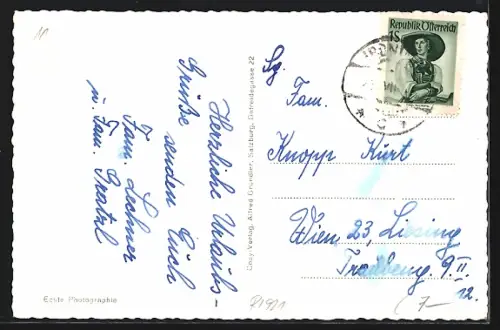 Herzliche Urlaubs-
Grüße senden Euch
Fam. Lechner
u. Fam. Gratzl
Echte Photographie
Cosy-Verlag, Alfred Gründler, Salzburg, Getreidegasse 22
Republik Österreich
1S
Sg.
Fam.
Knopp Kurt
Wien 23, Liesing
9. II
12.